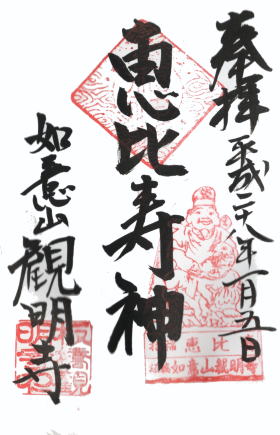 奉拝
平成二十八年一月五日
恵比寿神
如意山
観明寺
恵比
如意山観明寺